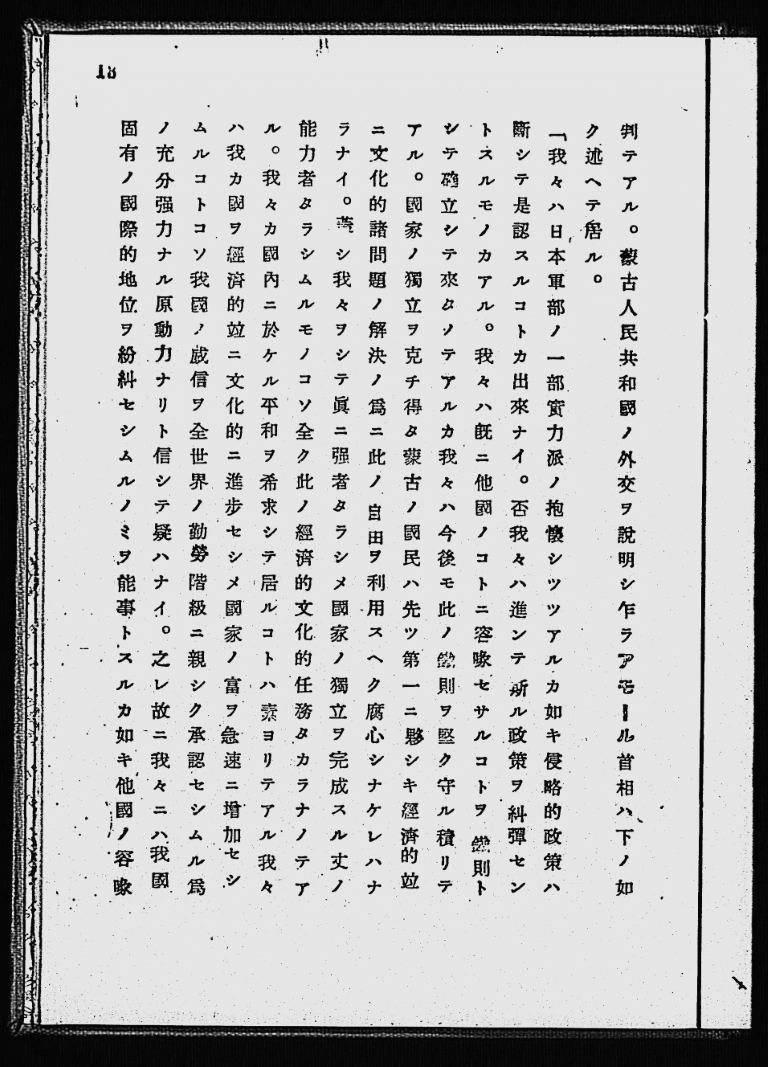 18
判テアル。蒙古人民共和國ノ外交ヲ說明シ乍ラアモール首相ハ下ノ如
ク述ヘテ居ル。
「我々ハ日本軍部ノ一部實力派ノ抱懷シツツアルカ如キ侵略的政策ハ
斷シテ是認スルコトカ出來ナイ。否我々ハ進ンテ斯ル政策ヲ糾彈セン
トスルモノカアル。我々ハ既ニ他國ノコトニ容喙セサルコトヲ鐵則ト
シテ確立シテ來タソテアルカ我々ハ今後モ此ノ鐵則ヲ堅ク守ル積リテ
アル。國家ノ獨立ヲ克チ得タ蒙古ノ國民ハ先ツ第一ニ夥シキ經濟的竝
ニ文化的諸問題ノ解決ノ爲ニ此ノ自由ヲ利用スヘク腐心シナケレハナ
ラナイ。蓋シ我々ヲシテ眞ニ强者タラシメ國家ノ獨立ヲ完成スル丈ノ
能力者タラシムルモノコソ全ク此ノ經濟的文化的任務タカラナノテア
ル。我々カ國內ニ於ケル平和ヲ希求シテ居ルコトハ素ヨリテアル我々
ハ我カ國ヲ經濟的竝ニ文化的ニ進步セシメ國家ノ富ヲ急速ニ增加セシ
ムルコトコソ我國ノ威信ヲ全世界ノ勤勞階級ニ親シク承認セシムル爲
ノ充分强力ナル原動力ナリト信シテ疑ハナイ。之レ故ニ我々ニハ我國
固有ノ國際的地位ヲ紛糾セシムルノミヲ能事トスルカ如キ他國ノ容喙